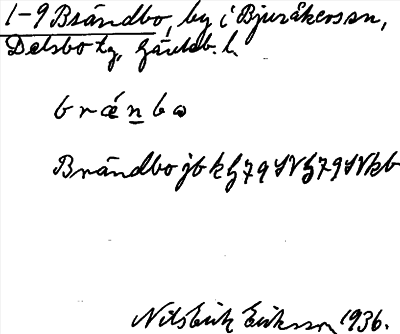 1-9 Brändbo, by i Bjuråkers sn,
Delsbo tg, Gävleb. l.
brǽnbω
Brändbo jb kg 79 SV g 79 SV kb
Nils Erik Eriksson 1936.